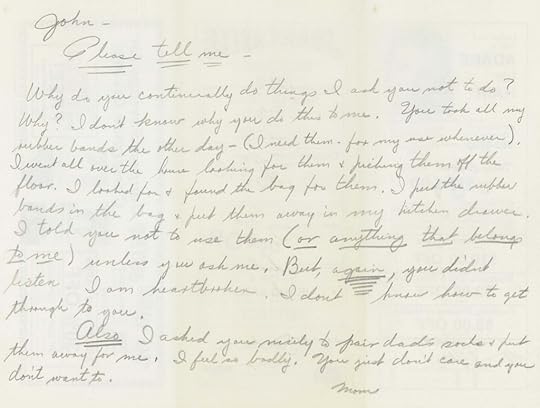 John -
Please tell me -
Why do you continually do things I ask you not to do?
Why? I don't know why you do this to me. You took all my
rubber bands the other day - (I need them - for my use whenever).
I went all over the house looking for them & picking them off the
floor. I looked for & found the bag for them. I put the rubber
bands in the bag & put them away in my kitchen drawer.
I told you not to use them (or anything that belongs
to me) unless you ask me. But, again, you didn't
listen I am heartbroken. I don't know how to get
through to you.
Also I asked you nicely to pair dad's socks & put
them away for me. I feel so badly. You just don't care and you
don't want to.
Mom